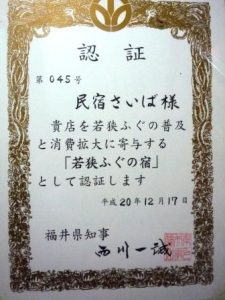 認証
第045号
民宿さいば様
貴店を若狭ふぐの普及
と消費拡大に寄与する
「若狭ふぐの宿」
として認証します
平成20年12月17日
福井県知事
西川一誠